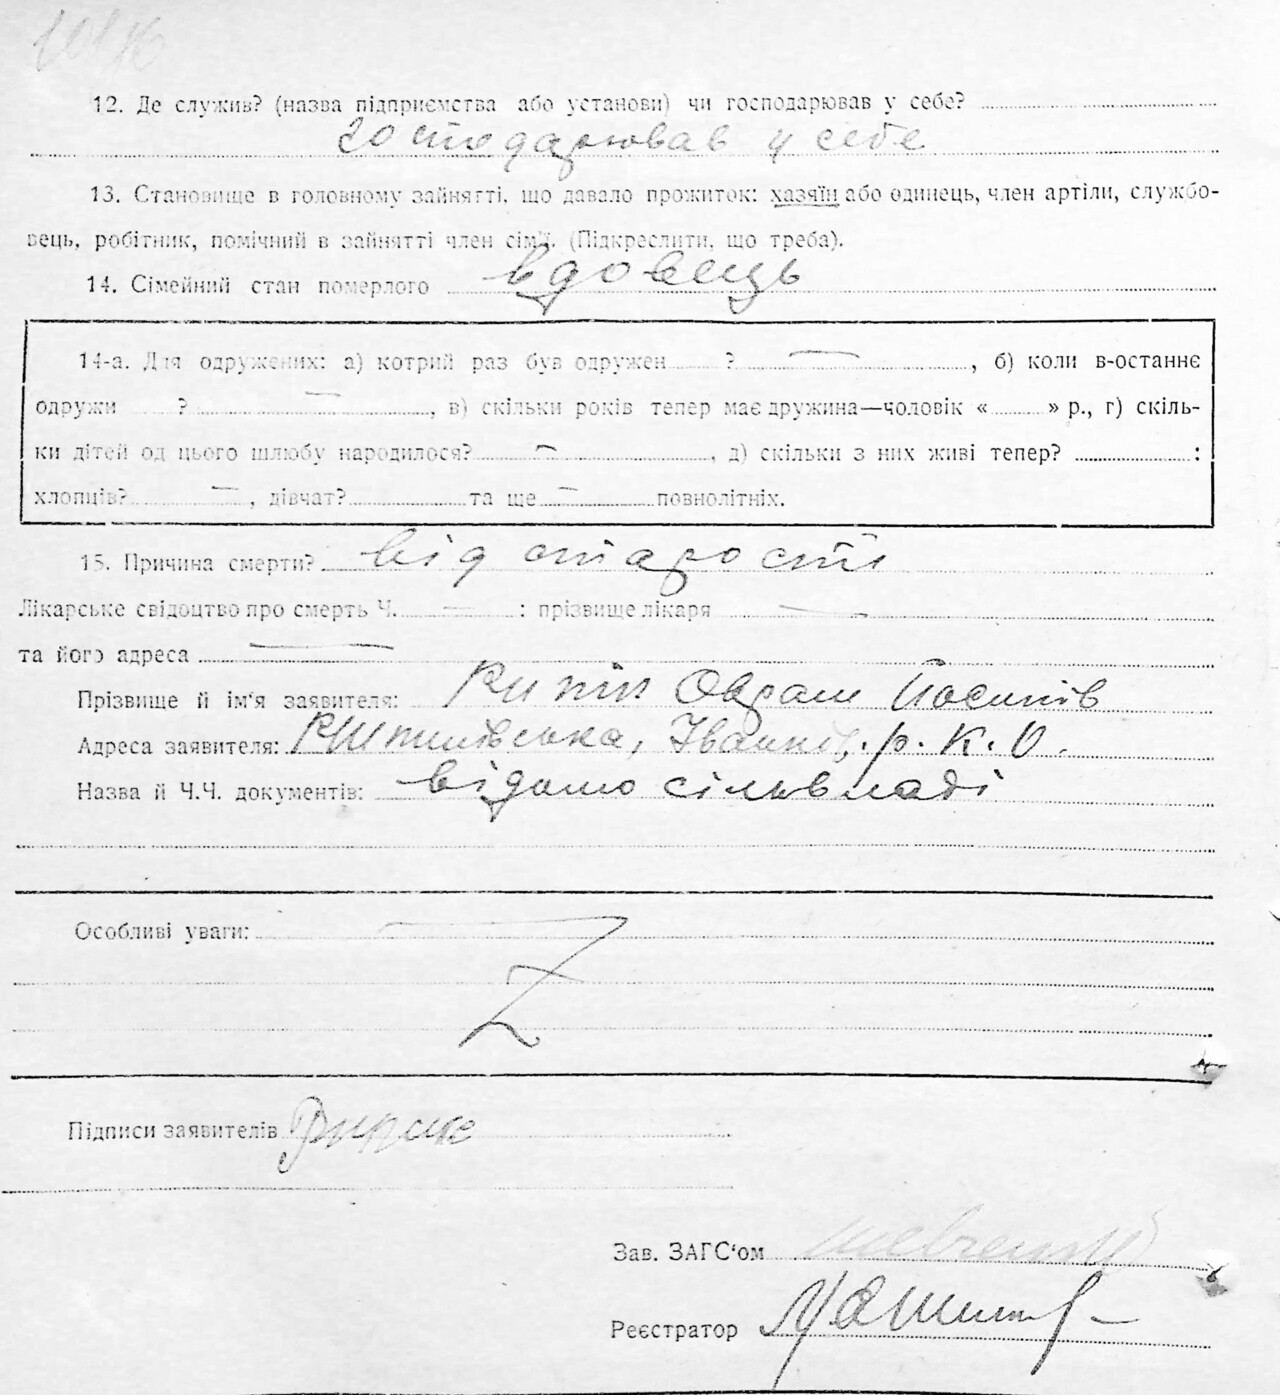 12. Де служив? (назва підприємства або установи) чи господарював у себе?
господарював у себе
13. Становище в головному зайнятті, що давало прожиток: хазяїн або одинець, член артіли, службо-
вець, робітник, помічний в зайнятті член сім'ї. (Підкреслити, що треба).
14. Сімейний стан померлого вдовець
14-а. Для одружених: а) котрий раз був одружен ? —, б) коли в-останнє
одружи ? —, в) скільки років тепер має дружина—чоловік « » р., г) скіль-
ки дітей од цього шлюбу народилося? —, д) скільки з них живі тепер? :
хлопців? —, дівчат? та ще — повнолітніх.
15. Причина смерти? від старости
Лікарське свідоцтво про смерть Ч. — : прізвище лікаря —
та його адреса —
Прізвище й ім'я заявителя: Йосипів
Адреса заявителя: р. К. О.
Назва й Ч.Ч. документів: відомо сільвладі
Особливі уваги: —
Підписи заявителів
Зав. ЗАГС'ом
Реєстратор